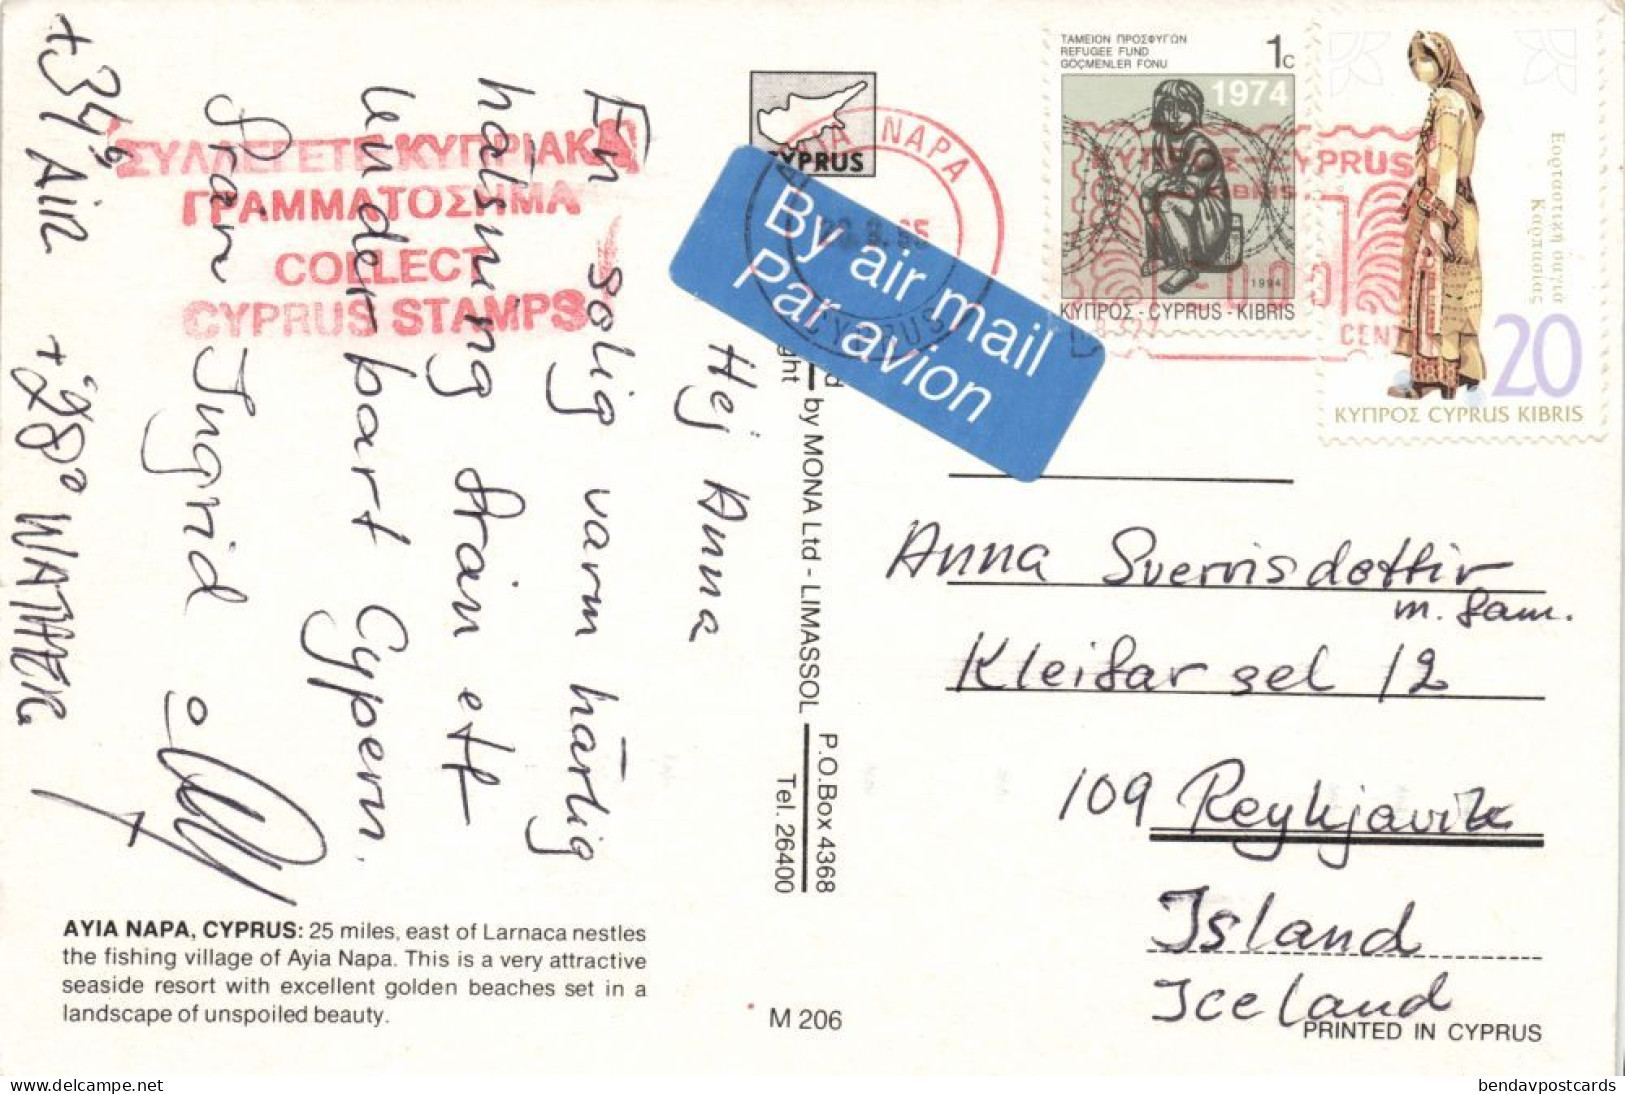 Hej Anna
En solig varm härlig
hälsning från ett
underbart Cypern.
från Ingrid
+34° AIR +28° WATHER
ΣΥΛΛΕΓΕΤΕ ΚΥΠΡΙΑΚΑ
ΓΡΑΜΜΑΤΟΣΗΜΑ
COLLECT
CYPRUS STAMPS
AYIA NAPA, CYPRUS: 25 miles, east of Larnaca nestles
the fishing village of Ayia Napa. This is a very attractive
seaside resort with excellent golden beaches set in a
landscape of unspoiled beauty.
CYPRUS
by MONA Ltd - LIMASSOL
P.O.Box 4368
Tel. 26400
M 206
By air mail
Par avion
NAPA
CYPRUS
ΤΑΜΕΙΟΝ ΠΡΟΣΦΥΓΩΝ
REFUGEE FUND
GÖÇMENLER FONU
1c
1974
1994
ΚΥΠΡΟΣ - CYPRUS - KIBRIS
ΚΥΠΡΟΣ - CYPRUS
KIBRIS
CENT
Εορταστική φορεσιά
Καρπασίας
20
ΚΥΠΡΟΣ CYPRUS KIBRIS
Anna Sverrisdottir
m. fam.
Kleifarsel 12
109 Reykjavik
Island
Iceland
PRINTED IN CYPRUS
delcampe.net
bendavpostcards